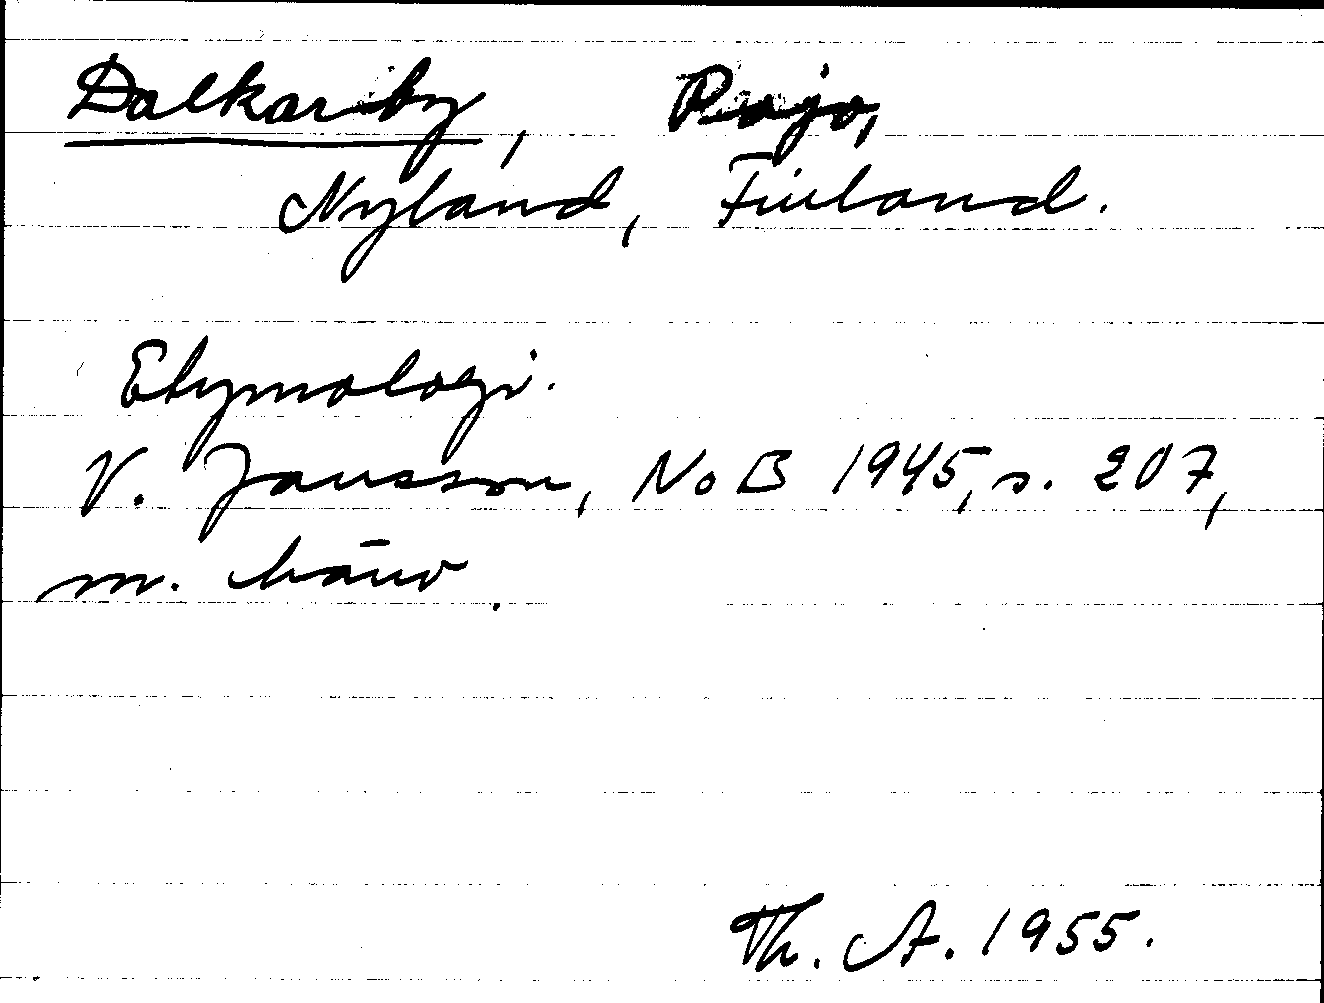 Dalkarby, Pojo,
Nyland, Finland.
Etymologi.
V. Jansson, NoB 1945, s. 207,
m. hänv.
Th. A. 1955.